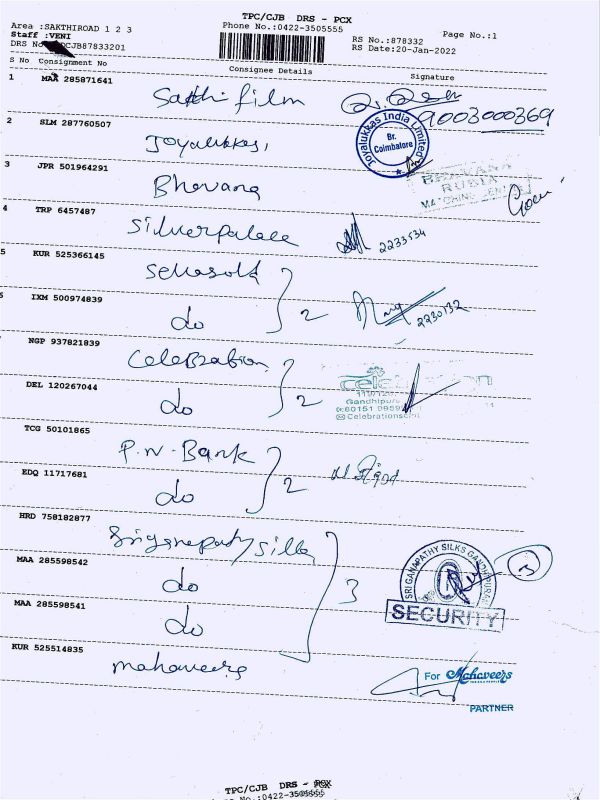 TPC/CJB DRS - PCX
Area :SAKTHIROAD 1 2 3
Phone No.:0422-3505555
Page No.:1
Staff :VENI
RS No.:878332
DRS No CJB87833201
RS Date:20-Jan-2022
S No Consignment No
Consignee Details
Signature
1 MAA 285871641
Sakthi film
9003000369
2 SLM 287760507
Joyalukkas,
Joyalukkas India Limited
Br.
Coimbatore
3 JPR 501964291
Bhavana
BHAVANA
RUBIA
MATCHING CENTRE
4 TRP 6457487
Silverpalace
2233534
5 KUR 525366145
6 IXM 500974839
do
2
2230132
NGP 937821839
Celebration
celebration
DEL 120267044
do
2
Gandhipur
TCG 50101865
P.N. Bank
EDQ 11717681
do
2
HRD 758182877
SRI GANAPATHY SILKS GANDHIPURAM
SECURITY
3
MAA 285598542
do
3
MAA 285598541
do
KUR 525514835
mahaveers
For Mahaveers
PARTNER
TPC/CJB DRS - PCX
No.:0422-3505555